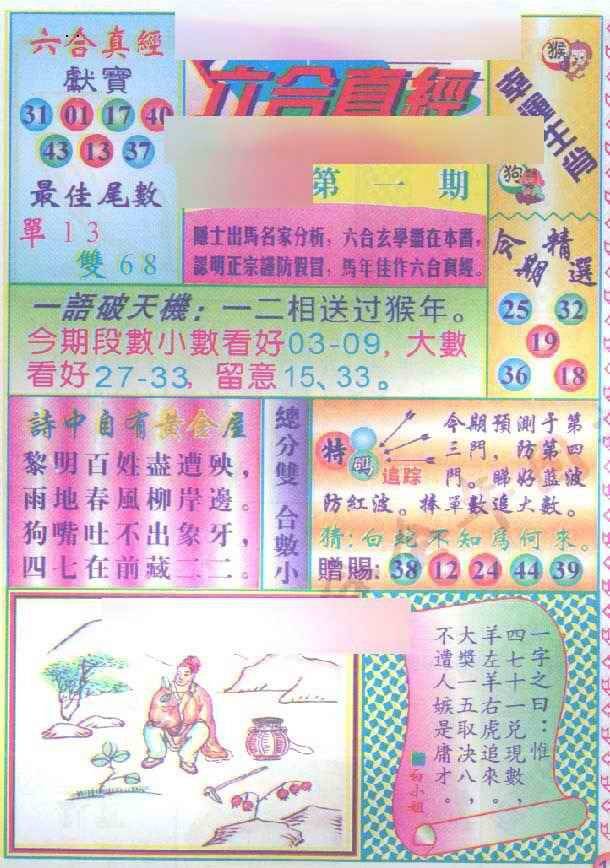 六合真經
獻寶
31 01 17 40
43 13 37
最佳尾數
單 1 3
雙 6 8
六合真經
第一期
隱士出馬名家分析，六合玄學盡在本書，
認明正宗謹防假冒，馬年佳作六合真經。
幸運生肖
猴
狗
今期精選
25 32
19
36 18
一語破天機：一二相送过猴年。
今期段數小數看好03-09，大數
看好27-33，留意15、33。
詩中自有黃金屋
黎明百姓盡遭殃，
雨地春風柳岸邊。
狗嘴吐不出象牙，
四七在前藏二二。
總分雙 合數小
特碼
追踪
今期預測于第
三門，防第四
門。睇好藍波
防紅波。捧單數追大數。
猜：白蛇不知爲何來。
贈賜：38 12 24 44 39
一字之曰：惟
四七十一兑現數，
羊左羊右虎追來。
大獎一五取决八，
不遭人嫉是庸才。
白小姐